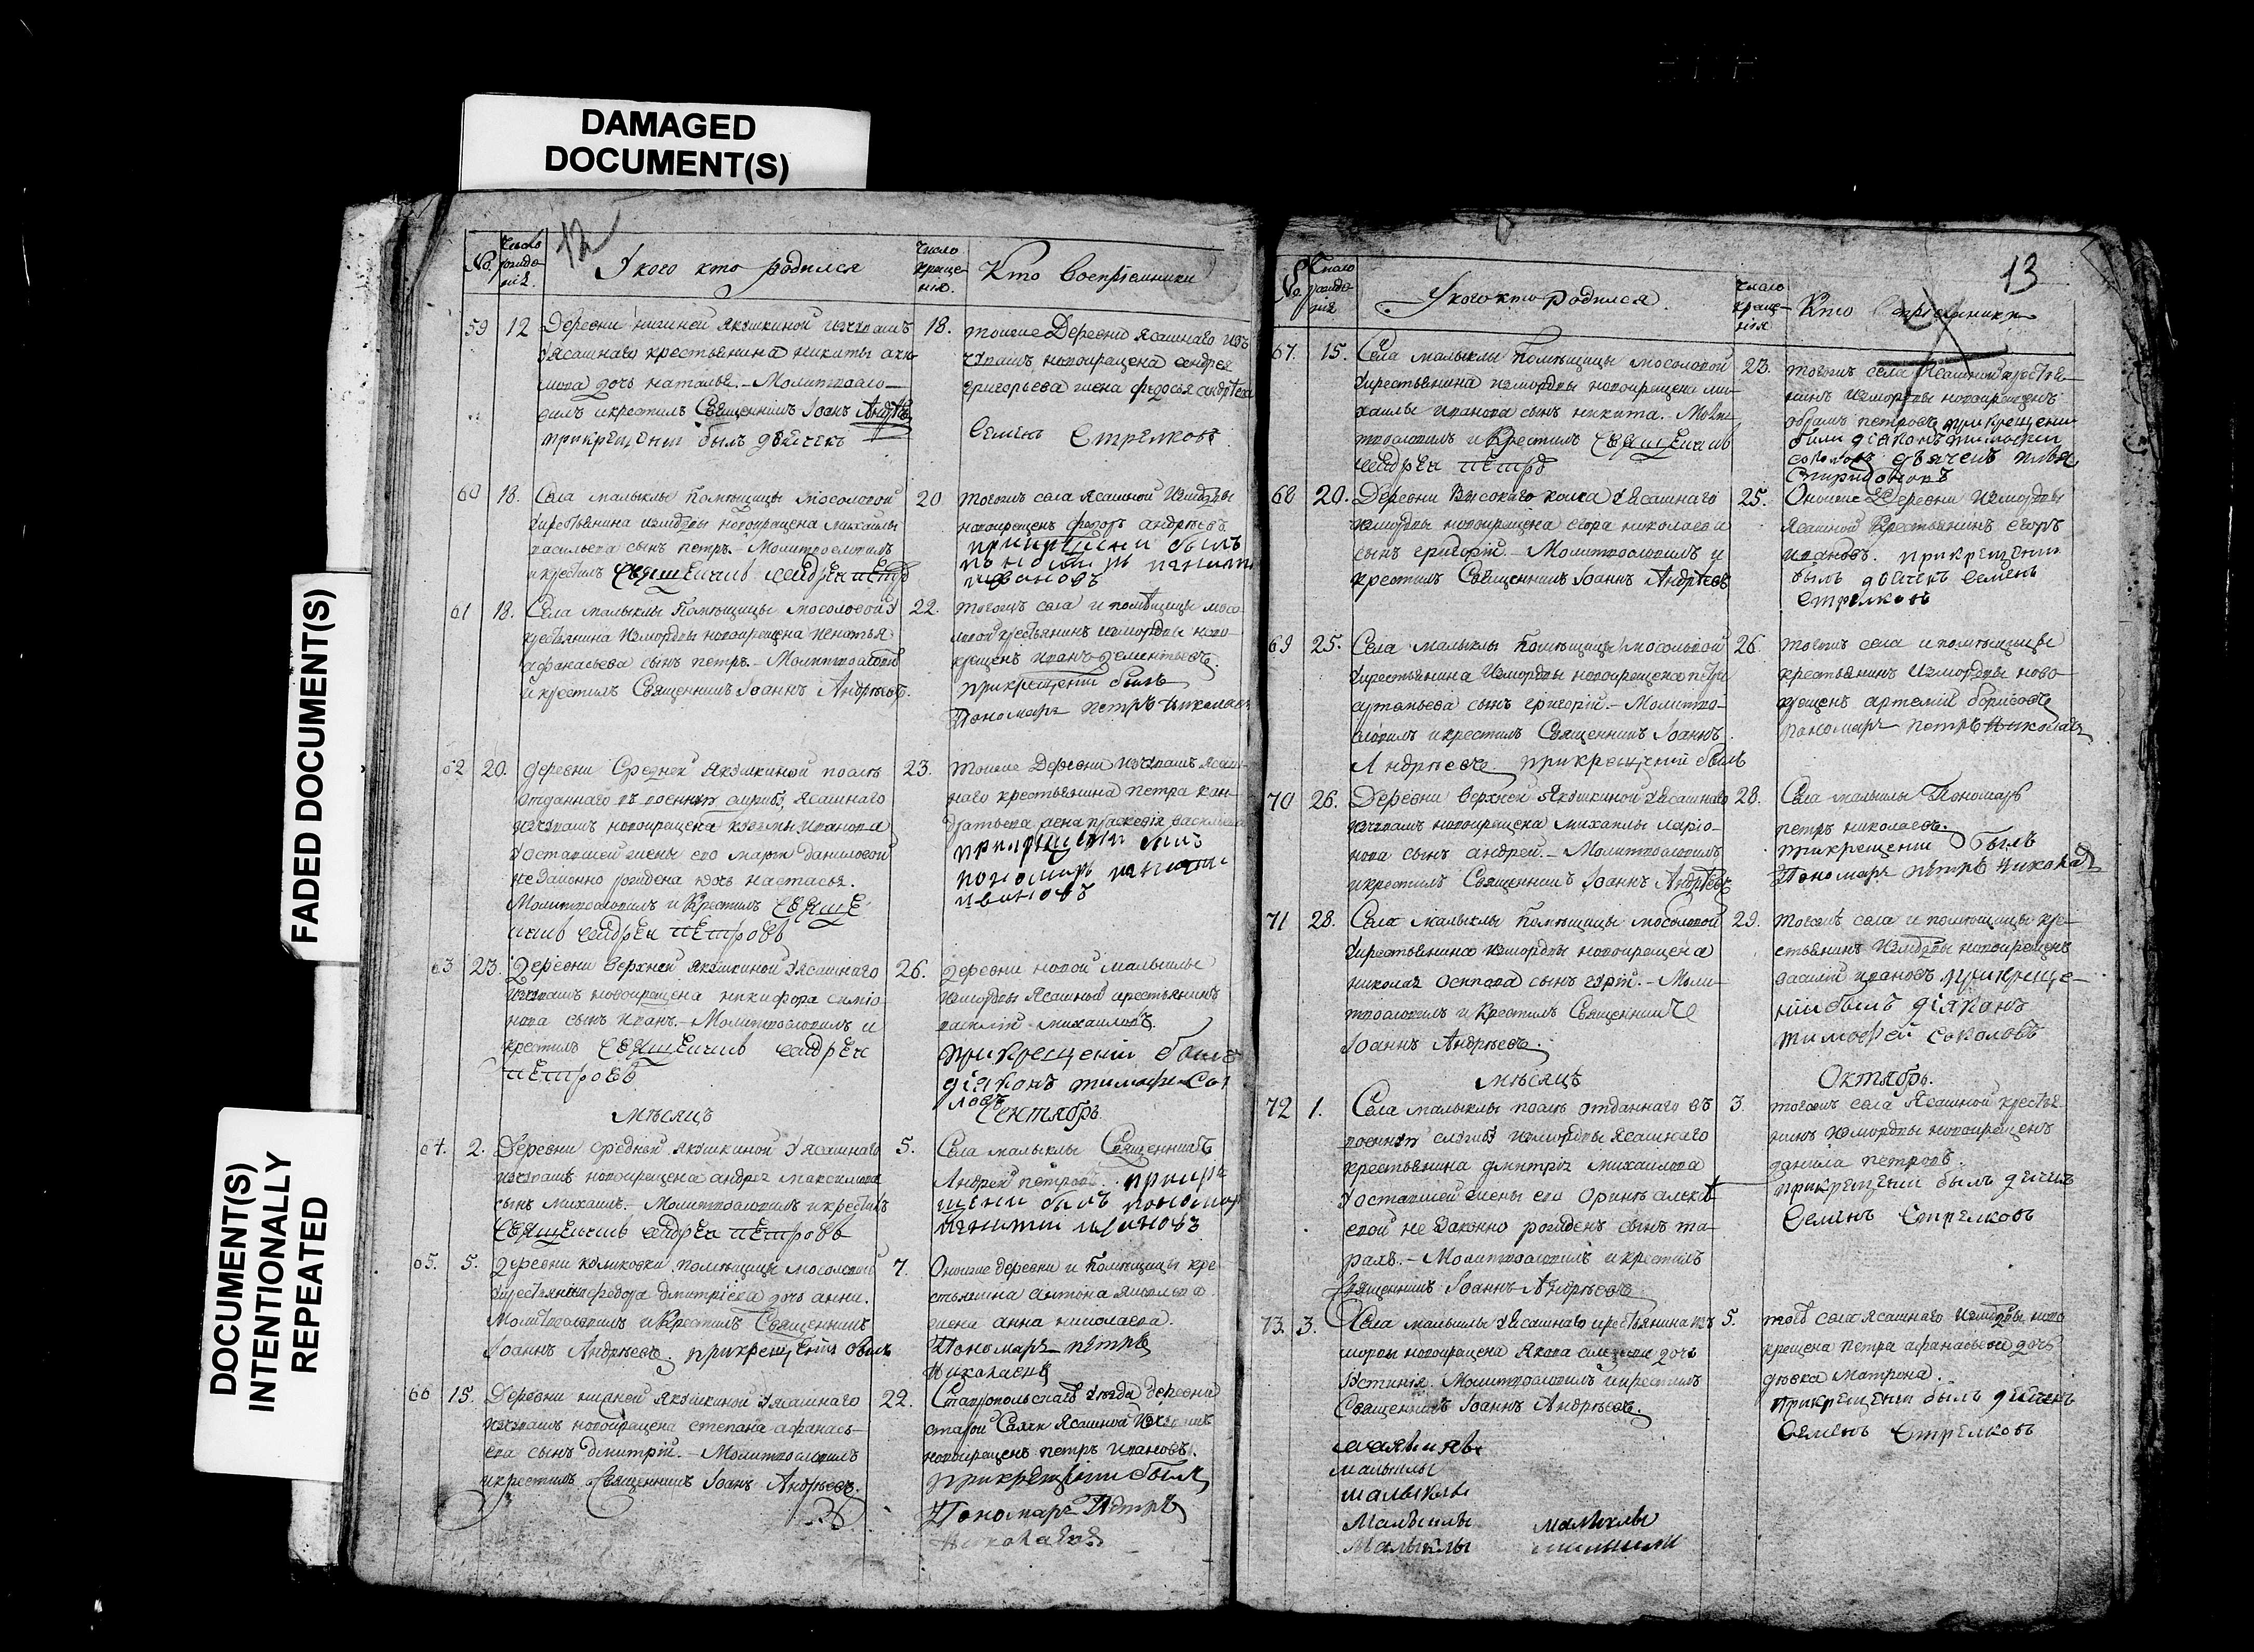 DAMAGED
DOCUMENT(S)
FADED DOCUMENT(S)
DOCUMENT(S)
INTENTIONALLY
REPEATED
12
№
Число рожденія.
У кого кто родился
Число крещенія.
Кто Воспріемники
59 12 Деревни нижней Якушкиной изчувашъ
у Ясашнаго крестьянина никиты
дочь наталья. – Молитвосло-
вилъ и крестилъ Священникъ Іоанъ Андрѣевъ
при крещении былъ дьячекъ
18. тоеже Деревни Ясашнаго изъ
чувашъ новокрещена андрея
григорьева жена федосья андрѣева
Семенъ Стрелковъ
60 18. Села малыклы Помѣщицы мосоловой
у крестьянина измордвы новокрещена михаилы
васильева сынъ петръ. – Молитвословилъ
и крестилъ Священникъ андреи петровъ
20 тогожъ села Ясашной измордвы
новокрещенъ федоръ андрѣевъ
при крещени былъ
пономарь никити
ивановъ
61 18. Села малыклы Помѣщицы мосоловой у
крестьянина измордвы новокрещена игнатья
афанасьева сынъ петръ. – Молитвословилъ
и крестилъ Священникъ Іоаннъ Андрѣевъ.
22. тогожъ села и помѣщицы мосо-
ловой крестьянинъ измордвы ново-
крещенъ иванъ дементьевъ.
при крещеніи былъ
Пономарь петръ николаевъ
62 20. деревни Средней Якушкиной послѣ
отданнаго въ военную службу, Ясашнаго
изчувашъ новокрещена кузмы иванова
у оставшей жены его марфы даниловой
незаконно рождена дочь настасья.
Молитвословилъ и Крестилъ Священ-
никъ андреи петровъ
23. тоеже Деревни изчувашъ Ясаш-
наго крестьянина петра кон-
дратьева жена прасковья васильева
при крещени былъ
пономарь никити
ивановъ
63 23. Деревни верхней Якушкиной у Ясашнаго
изчувашъ новокрещена никифора симіо-
нова сынъ иванъ. – Молитвословилъ и
крестилъ Священникъ андреи
петровъ
26. деревни новой малыклы
измордвы Ясашной крестьянинъ
василій михаиловъ.
при крещеніи былъ
діяконъ тимофеи Соко
ловъ
мѣсяцъ Сентябрь.
64. 2. Деревни средней Якушкиной у Ясашнаго
изчувашъ новокрещена андрея максимова
сынъ михаилъ. – Молитвословилъ и крестилъ
Священникъ андреи петровъ
5. Села малыклы Священникъ
Андрей петровъ. при кре
щени былъ пономарь
никити ивановъ
65. 5. деревни куликовки помѣщицы мосоловой
у крестьянина федора дмитріева дочь анна.
Молитвословилъ и Крестилъ Священникъ
Іоаннъ Андрѣевъ. при крещеніи былъ
7. Оноиже деревни и Помѣщицы кре
стьянина антона яковлева
жена анна николаева.
Пономарь петръ
николаевъ
66 15. Деревни нижней Якушкиной у Ясашнаго
изчувашъ новокрещена степана афанась-
ева сынъ дмитрій. – Молитвословилъ
и крестилъ Священникъ Іоанъ Андрѣевъ.
22. Ставропольскаго уѣзда деревни
старой Ясашной изчувашъ
новокрещенъ петръ ивановъ.
при крещеніи былъ
Пономарь Петръ
Николаевъ
13
№
Число рожденія
У кого кто родился.
Число крещенія
Кто Воспріемники
67. 15. Села малыклы Помѣщицы мосоловой
у крестьянина измордвы новокрещена ми-
хаилы иванова сынъ никита. Моли
твословилъ и Крестилъ Священникъ
андреи петровъ
23. тогожъ села Ясашной крестья-
нинъ измордвы новокрещенъ
абрамъ петровъ при крещени
были діяконъ тимофеи
соколовъ дьячекъ илья
Спиридоновъ
68 20. Деревни Высокаго колка у Ясашнаго
измордвы новокрещена егора николаева
сынъ григорій. – Молитвословилъ и
крестилъ Священникъ Іоаннъ Андрѣевъ
25. Оноиже Деревни измордвы
Ясашной Крестьянинъ егоръ
ивановъ. при крещении
былъ дьячекъ Семенъ
Стрелковъ
69 25. Села малыклы Помѣщицы мосоловой
у крестьянина измордвы новокрещена
артемьева сынъ григорій. – Молитво-
словилъ и крестилъ Священникъ Іоаннъ
Андрѣевъ. при крещеніи былъ
26. тогожъ села и помѣщицы
крестьянинъ измордвы ново-
крещенъ артемій борисовъ
пономарь петръ Николаевъ
70 26. Деревни верхней Якушкиной у Ясашнаго
изчувашъ новокрещена михаилы ларіо-
нова сынъ андрей. – Молитвословилъ
и крестилъ Священникъ Іоаннъ Андрѣевъ
28. Села малыклы Пономарь
петръ николаевъ.
при крещении былъ
Пономарь петръ николаевъ
71 28. Села малыклы Помѣщицы мосоловой
у крестьянина измордвы новокрещена
николая осипова сынъ. – Моли-
твословилъ и Крестилъ Священникъ
Іоаннъ Андрѣевъ.
29. тогожъ села и помѣщицы кре-
стьянинъ измордвы новокрещенъ
василій ивановъ. при креще-
ніи былъ діяконъ
тимофей соколовъ
мѣсяцъ Октябрь.
72 1. Села малыклы послѣ отданнаго въ
военную службу измордвы Ясашнаго
крестьянина дмитрія михаилова
у оставшей жены его Орины алекѣ-
евой не законно рожденъ сынъ та-
расъ. – Молитвословилъ и крестилъ
Священникъ Іоаннъ Андрѣевъ.
3. тогожъ села Ясашной крестья-
нинъ измордвы новокрещенъ
данила петровъ.
при крещении былъ дьячекъ
Семенъ Стрелковъ
73. 3. Села малыклы у Ясашнаго крестьянина из
мордвы новокрещена Якова дочь
Устинія. Молитвословилъ и крестилъ
Священникъ Іоаннъ Андрѣевъ.
5. тогоже села Ясашнаго измордвы ново
крещена петра афанасьева дочь
девка матрона.
при крещении былъ дьячекъ
Семенъ Стрелковъ
малыклы
малыклы
Малыклы малыклы
Малыклы малыклы